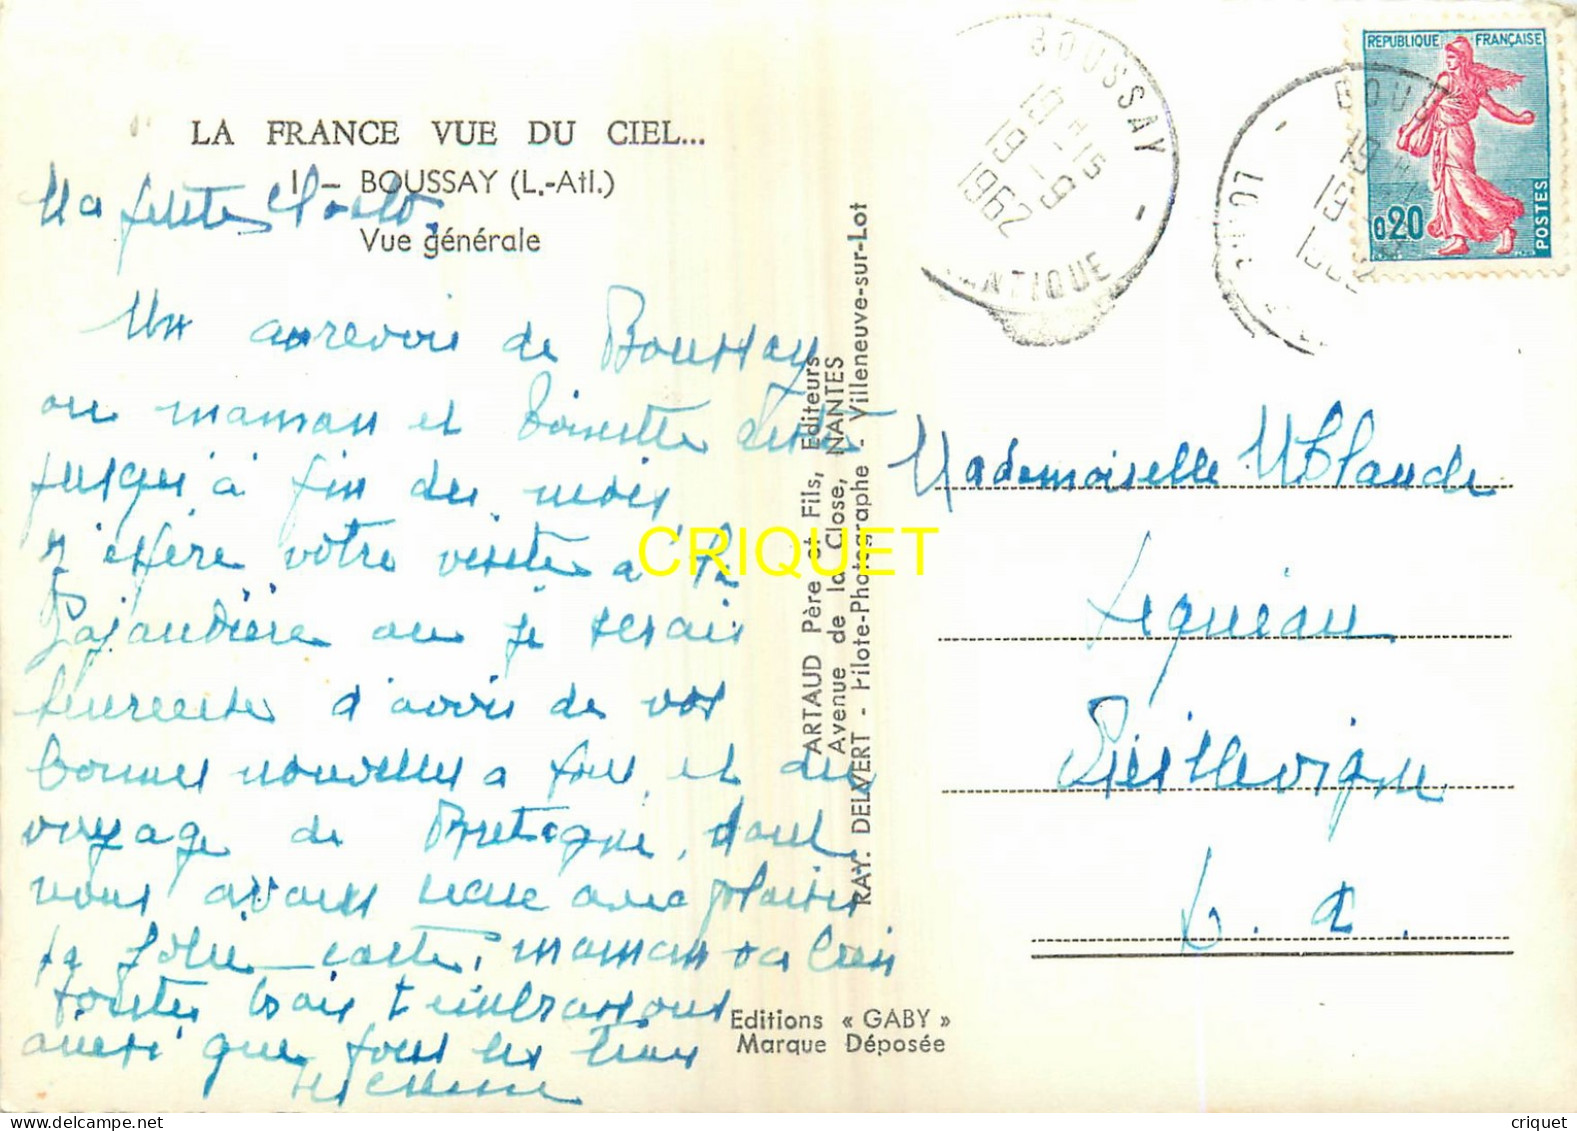 LA FRANCE VUE DU CIEL...
1 – BOUSSAY (L.-Atl.)
Vue générale
Ma petite
Un aurevoir de Boussay
ou maman et
jusqu'à fin du mois,
j'espère votre visite à la
ou je serais
heureuse d'avoir de vos
bonnes nouvelles a tous, et du
voyage de Bretagne, dont
nous avons recue avec plaisir
ta jolie carte, maman va bien
toutes trois t'embrassons
ainsi que tous les tiens
ARTAUD Père et Fils, Editeurs
Avenue de la Close, NANTES
RAY. DELVERT - Pilote-Photographe - Villeneuve-sur-Lot
Editions « GABY »
Marque Déposée
BOUSSAY
19 H 15
19 - 9
1962
ANTIQUE
BOU
19 H
19
REPUBLIQUE FRANÇAISE
0,20
POSTES
Mademoiselle M Claude
Lequieau
Vieillevigne
L. A.
CRIQUET
criquet